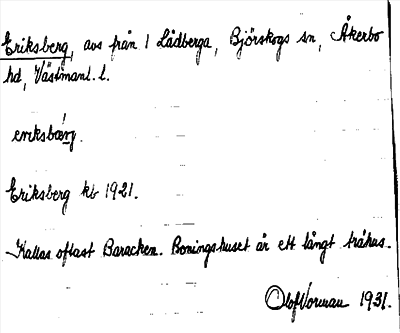 Eriksberg, avs från 1 Lådberga, Björskogs sn, Åkerbo
hd, Västmanl. l.
eriksbærj.
Eriksberg kb 1921.
Kallas oftast Baracken. Boningshuset är ett långt trähus.
Olof Vorman 1931.